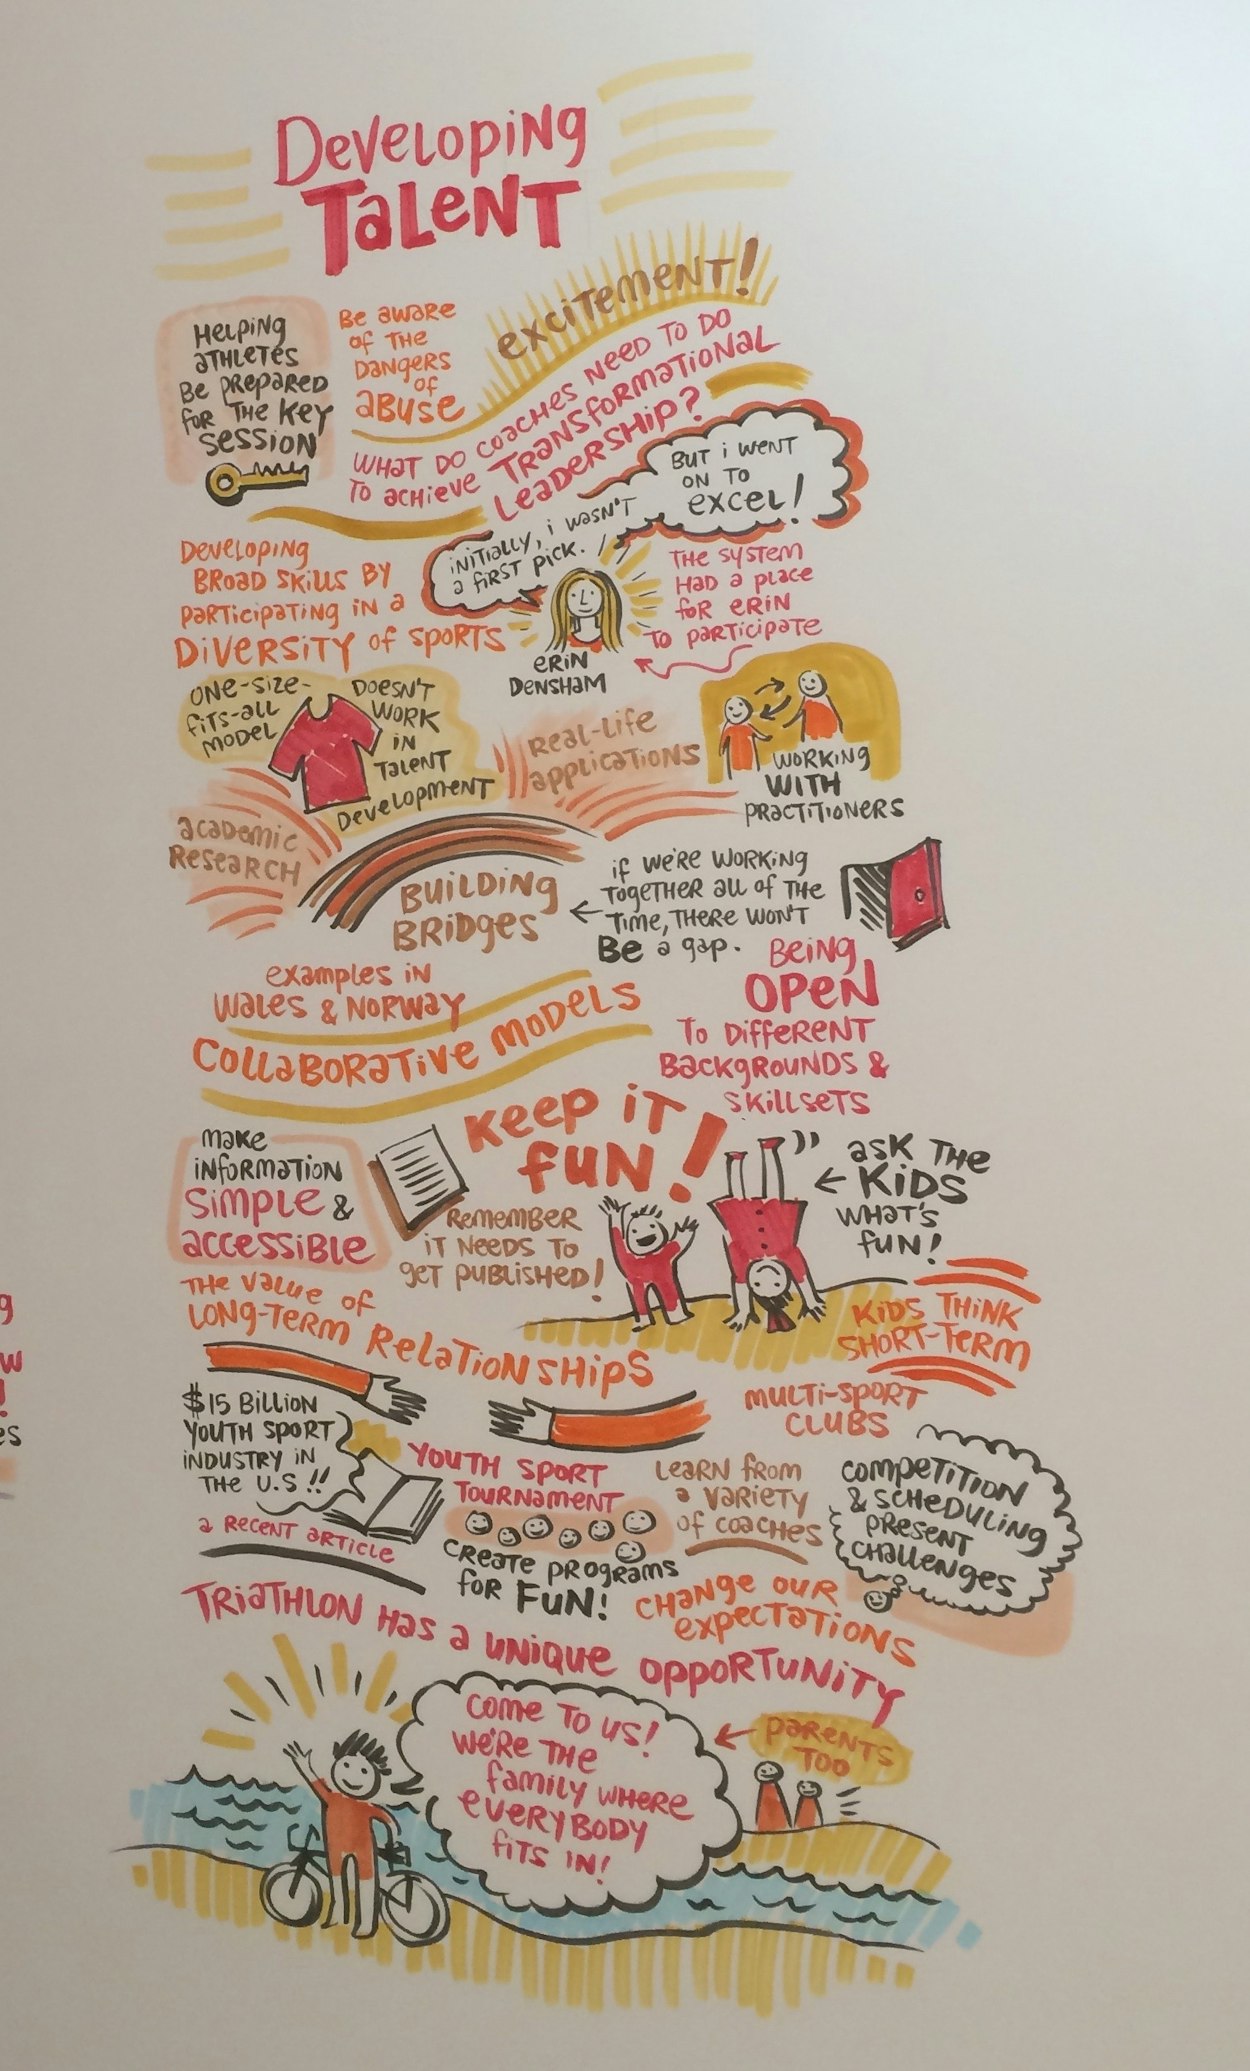 Developing
Talent
Excitement!
Helping
athletes
be prepared
for the key
session
Be aware
of the
dangers
of
abuse
What do coaches need to do
to achieve transformational
leadership?
Initially, I wasn't
a first pick.
But I went
on to
excel!
Erin
Densham
The system
had a place
for Erin
to participate
Developing
broad skills by
participating in a
diversity of sports
One-size-
fits-all
model
doesn't
work
in
talent
development
Real-life
applications
Working
with
practitioners
Academic
research
Building
bridges
If we're working
together all of the
time, there won't
be a gap.
Being
open
to different
backgrounds &
skillsets
Examples in
Wales & Norway
Collaborative models
Keep it
fun!
Make
information
simple &
accessible
Remember
it needs to
get published!
Ask the
kids
what's
fun!
Kids think
short-term
The value of
long-term relationships
$15 billion
youth sport
industry in
the U.S!!
a recent article
Youth sport
tournament
Create programs
for fun!
Multi-sport
clubs
Learn from
a variety
of coaches
Competition
& scheduling
present
challenges
Change our
expectations
Triathlon has a unique opportunity
Come to us!
We're the
family where
everybody
fits in!
Parents
too
g
w
!
es